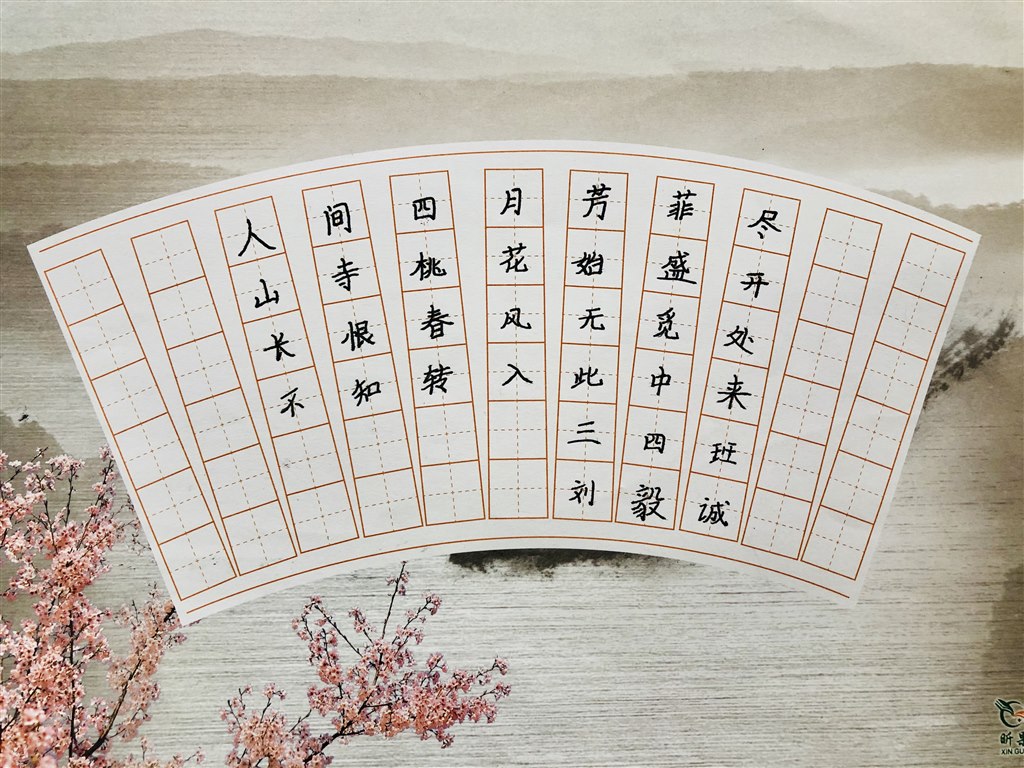 人间四月芳菲尽
山寺桃花始盛开
长恨春风无觅处
不知转入此中来
三四班
刘毅诚
昕
XIN